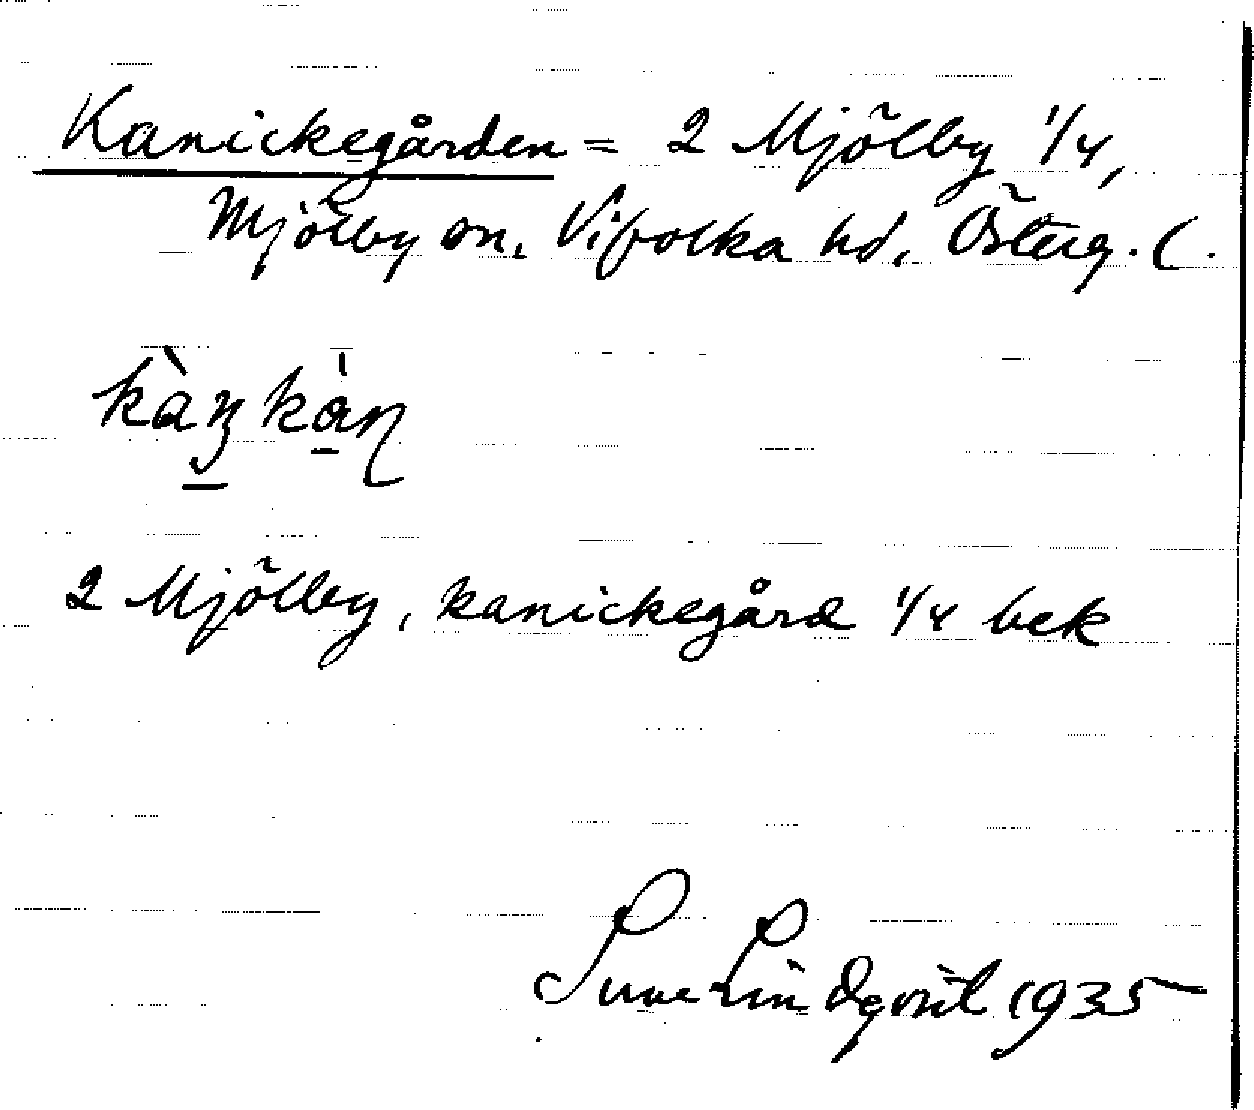 Kanickegården = 2 Mjölby 1/4,
Mjölby sn. Vifolka hd, Österg. l.
2 Mjölby, kanickegård 1/4 bek
Sune Lindqvist 1935